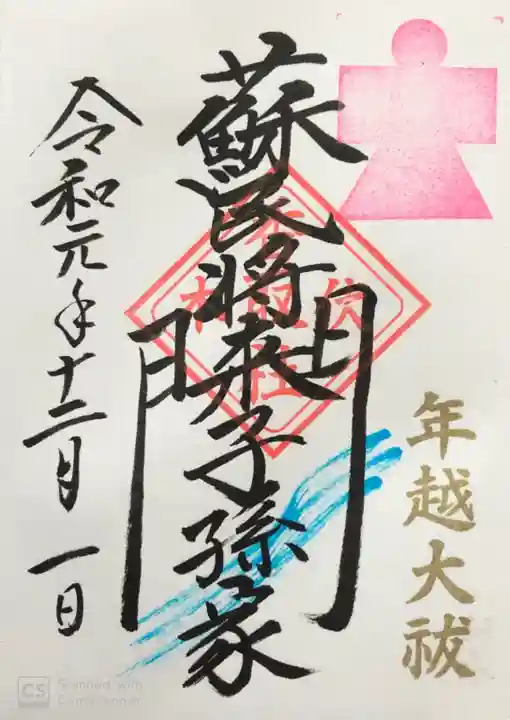 年越大祓
蘇民将来子孫家門
令和元年十二月一日
CS Scanned with
CamScanner